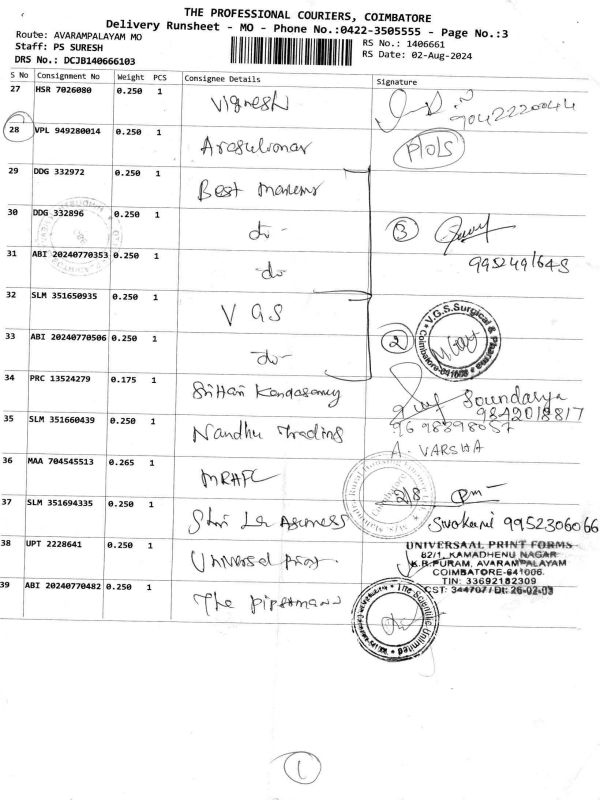 THE PROFESSIONAL COURIERS, COIMBATORE
Delivery Runsheet - MO - Phone No.:0422-3505555 - Page No.:3
Route: AVARAMPALAYAM MO
RS No.: 1406661
Staff: PS SURESH
RS Date: 02-Aug-2024
DRS No.: DCJB140666103
S No Consignment No Weight PCS Consignee Details Signature
27 HSR 7026080 0.250 1 Vignesh
9042220044
28 VPL 949280014 0.250 1
29 DDG 332972 0.250 1 Best
30 DDG 332896 0.250 1 -do- 3
31 ABI 20240770353 0.250 1 -do-
9952491645
32 SLM 351650935 0.250 1 VGS
V.G.S. Surgical & Pharma
Coimbatore
33 ABI 20240770506 0.250 1 -do- 2
34 PRC 13524279 0.175 1 Sri Hari Kandasamy Soundarya
9842018817
35 SLM 351660439 0.250 1 Nandhu Trading 9698398057
A. VARSHA
36 MAA 704545513 0.265 1 MRHFL
2/8
37 SLM 351694335 0.250 1
9952306066
38 UPT 2228641 0.250 1 Universal
UNIVERSAAL PRINT FORMS
82/1, KAMADHENU NAGAR
K.R.PURAM, AVARAMPALAYAM
COIMBATORE-641006.
TIN: 33692182309
CST: 344707/ Dt: 26-02-03
39 ABI 20240770482 0.250 1 The
The Scientific Unlimited
1